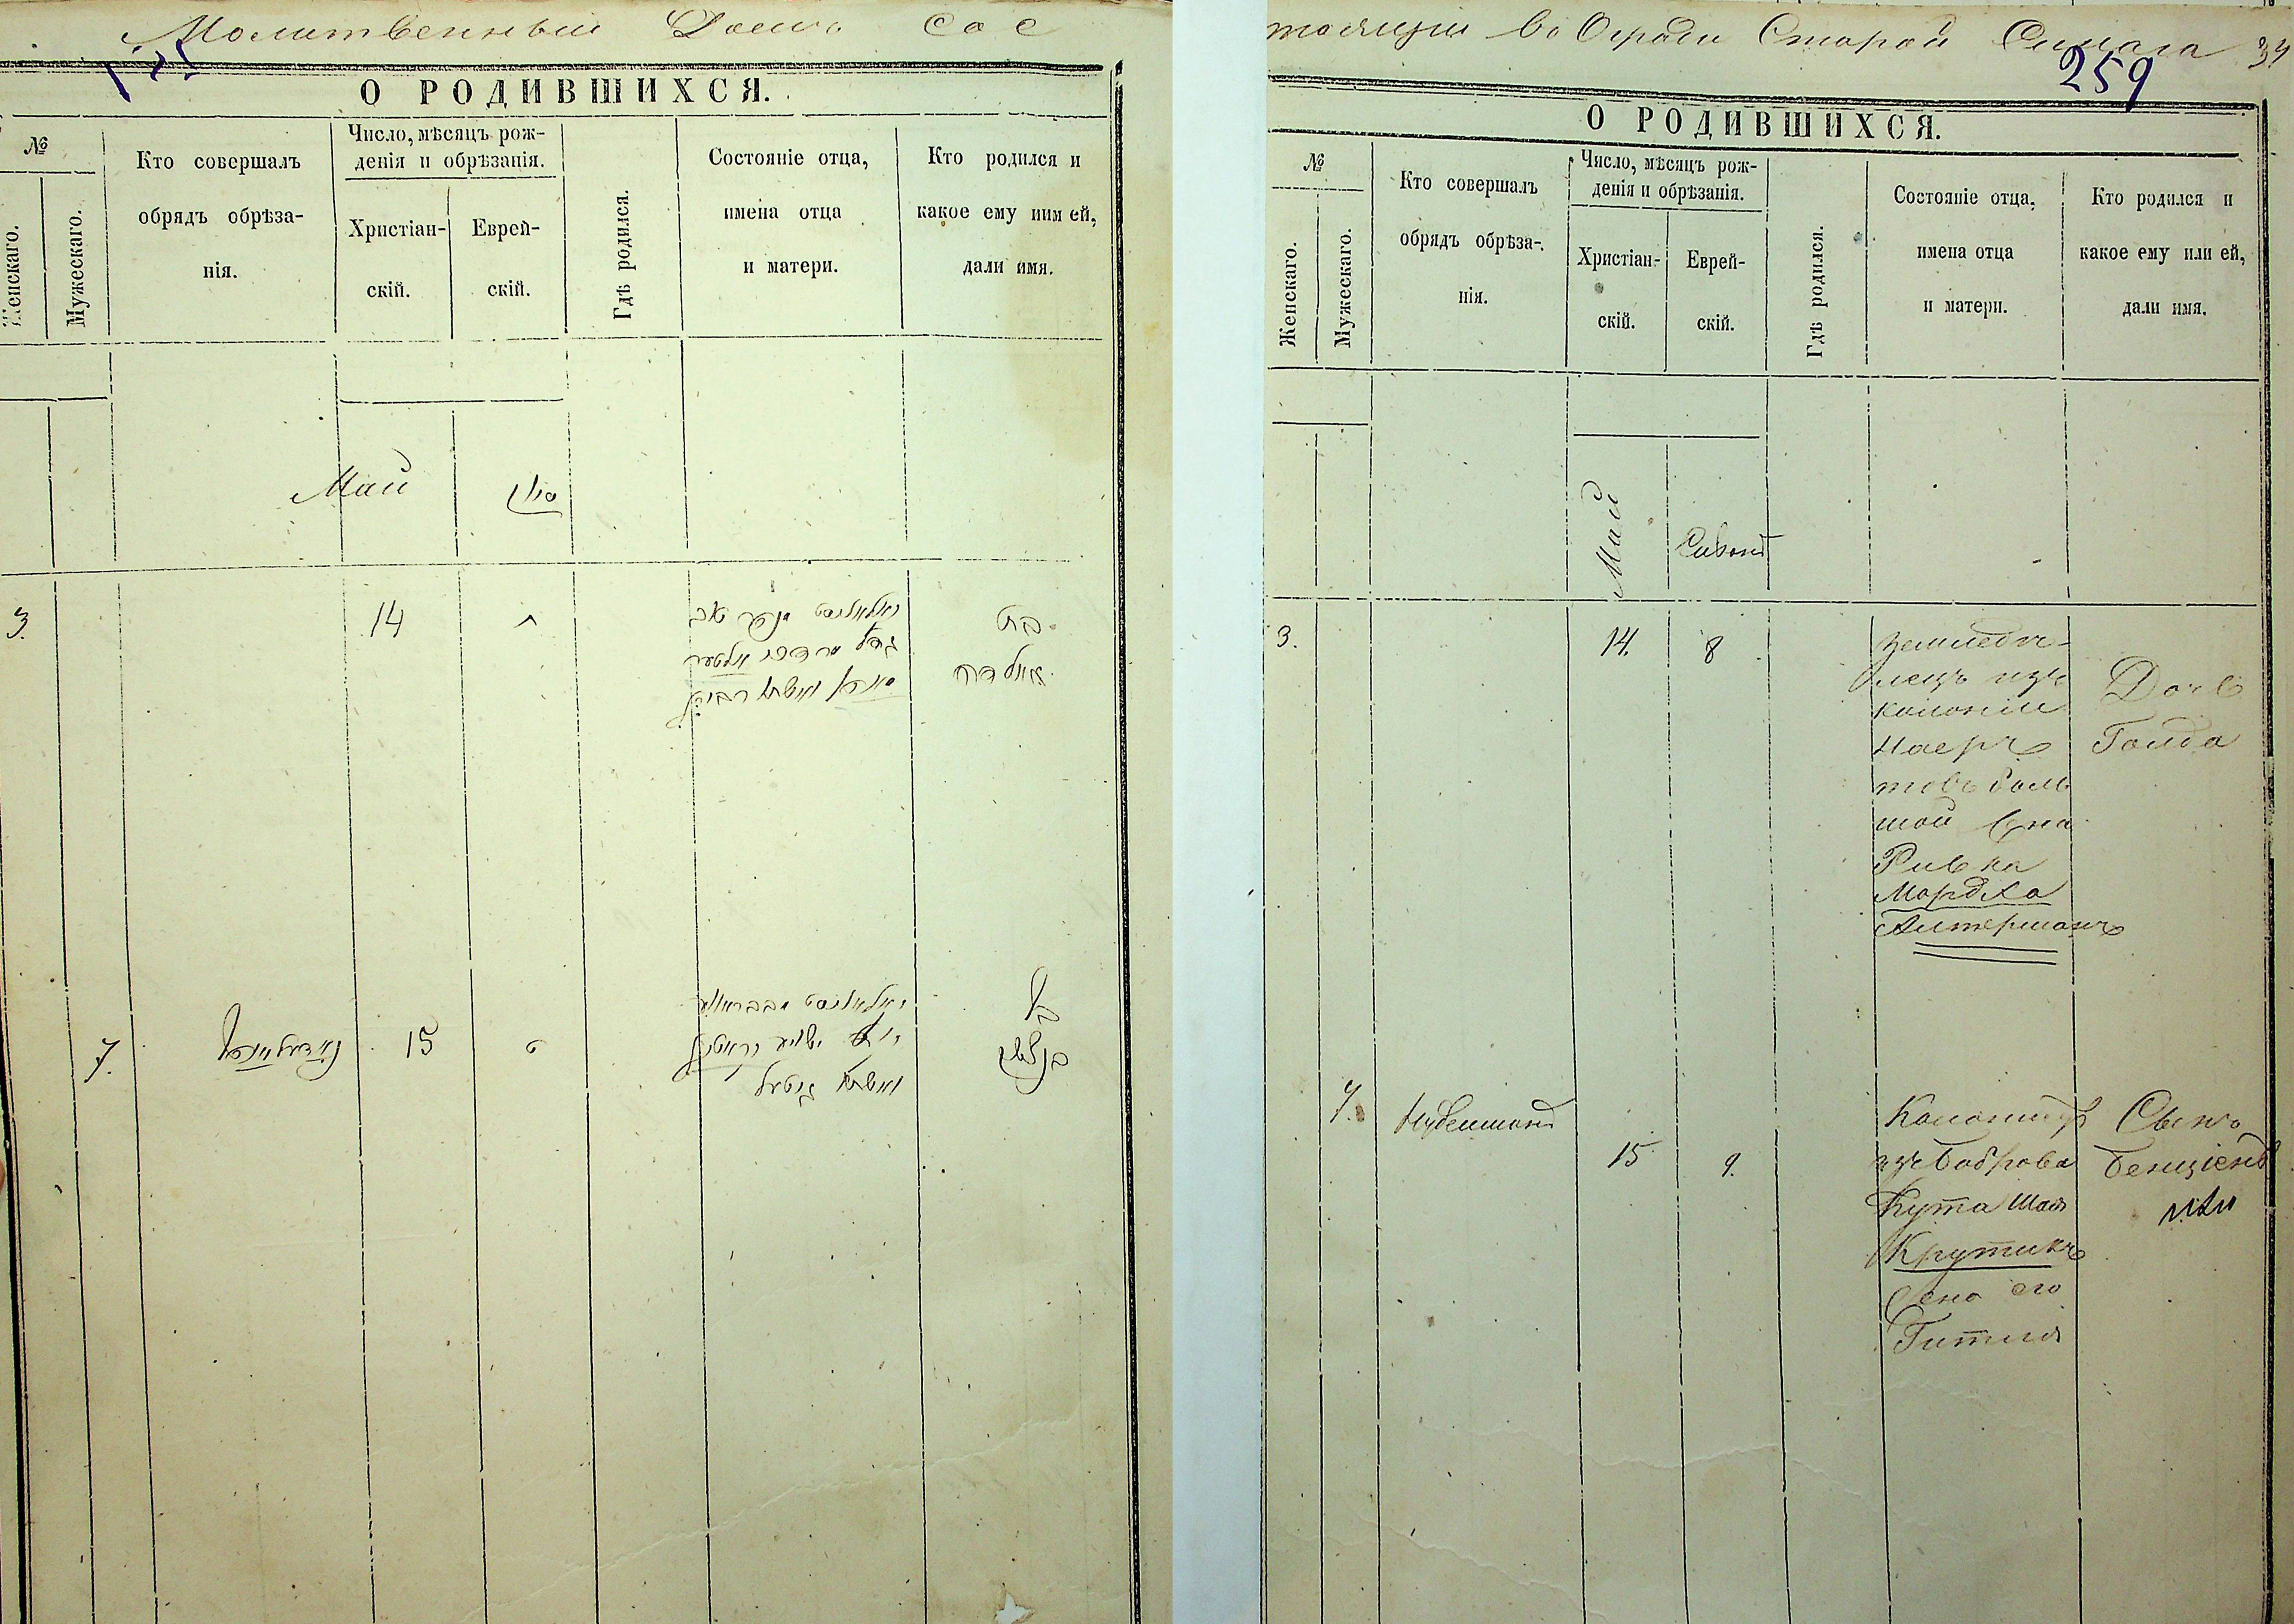 Молитвенный Домъ Сос
О РОДИВШИХСЯ.
№
Женскаго.
Мужескаго.
Кто совершалъ
обрядъ обрѣза-
нія.
Число, мѣсяцъ рож-
денія и обрѣзанія.
Христіан-
скій.
Еврей-
скій.
Гдѣ родился.
Состояніе отца,
имена отца
и матери.
Кто родился и
какое ему или ей,
дали имя.
Май
סיון
3.
14
ח
בת
גאלדה
7.
15
ט
בן
בנציון
тоящій во Огради Старой Синага
34
259
О РОДИВШИХСЯ.
№
Женскаго.
Мужескаго.
Кто совершалъ
обрядъ обрѣза-
нія.
Число, мѣсяцъ рож-
денія и обрѣзанія.
Христіан-
скій.
Еврей-
скій.
Гдѣ родился.
Состояніе отца,
имена отца
и матери.
Кто родился и
какое ему или ей,
дали имя.
Май
Сиванъ
3.
14.
8
Земледѣ-
лецъ изъ
колоніи
боль
шой
Ривка
Мордха
Алтерманъ
Дочь
Голда
7.
15
9.
Колонистъ
изъ Боброва
Кута Шая
Крутикъ
Жена его
Гитля
Сынъ
Бенціенъ